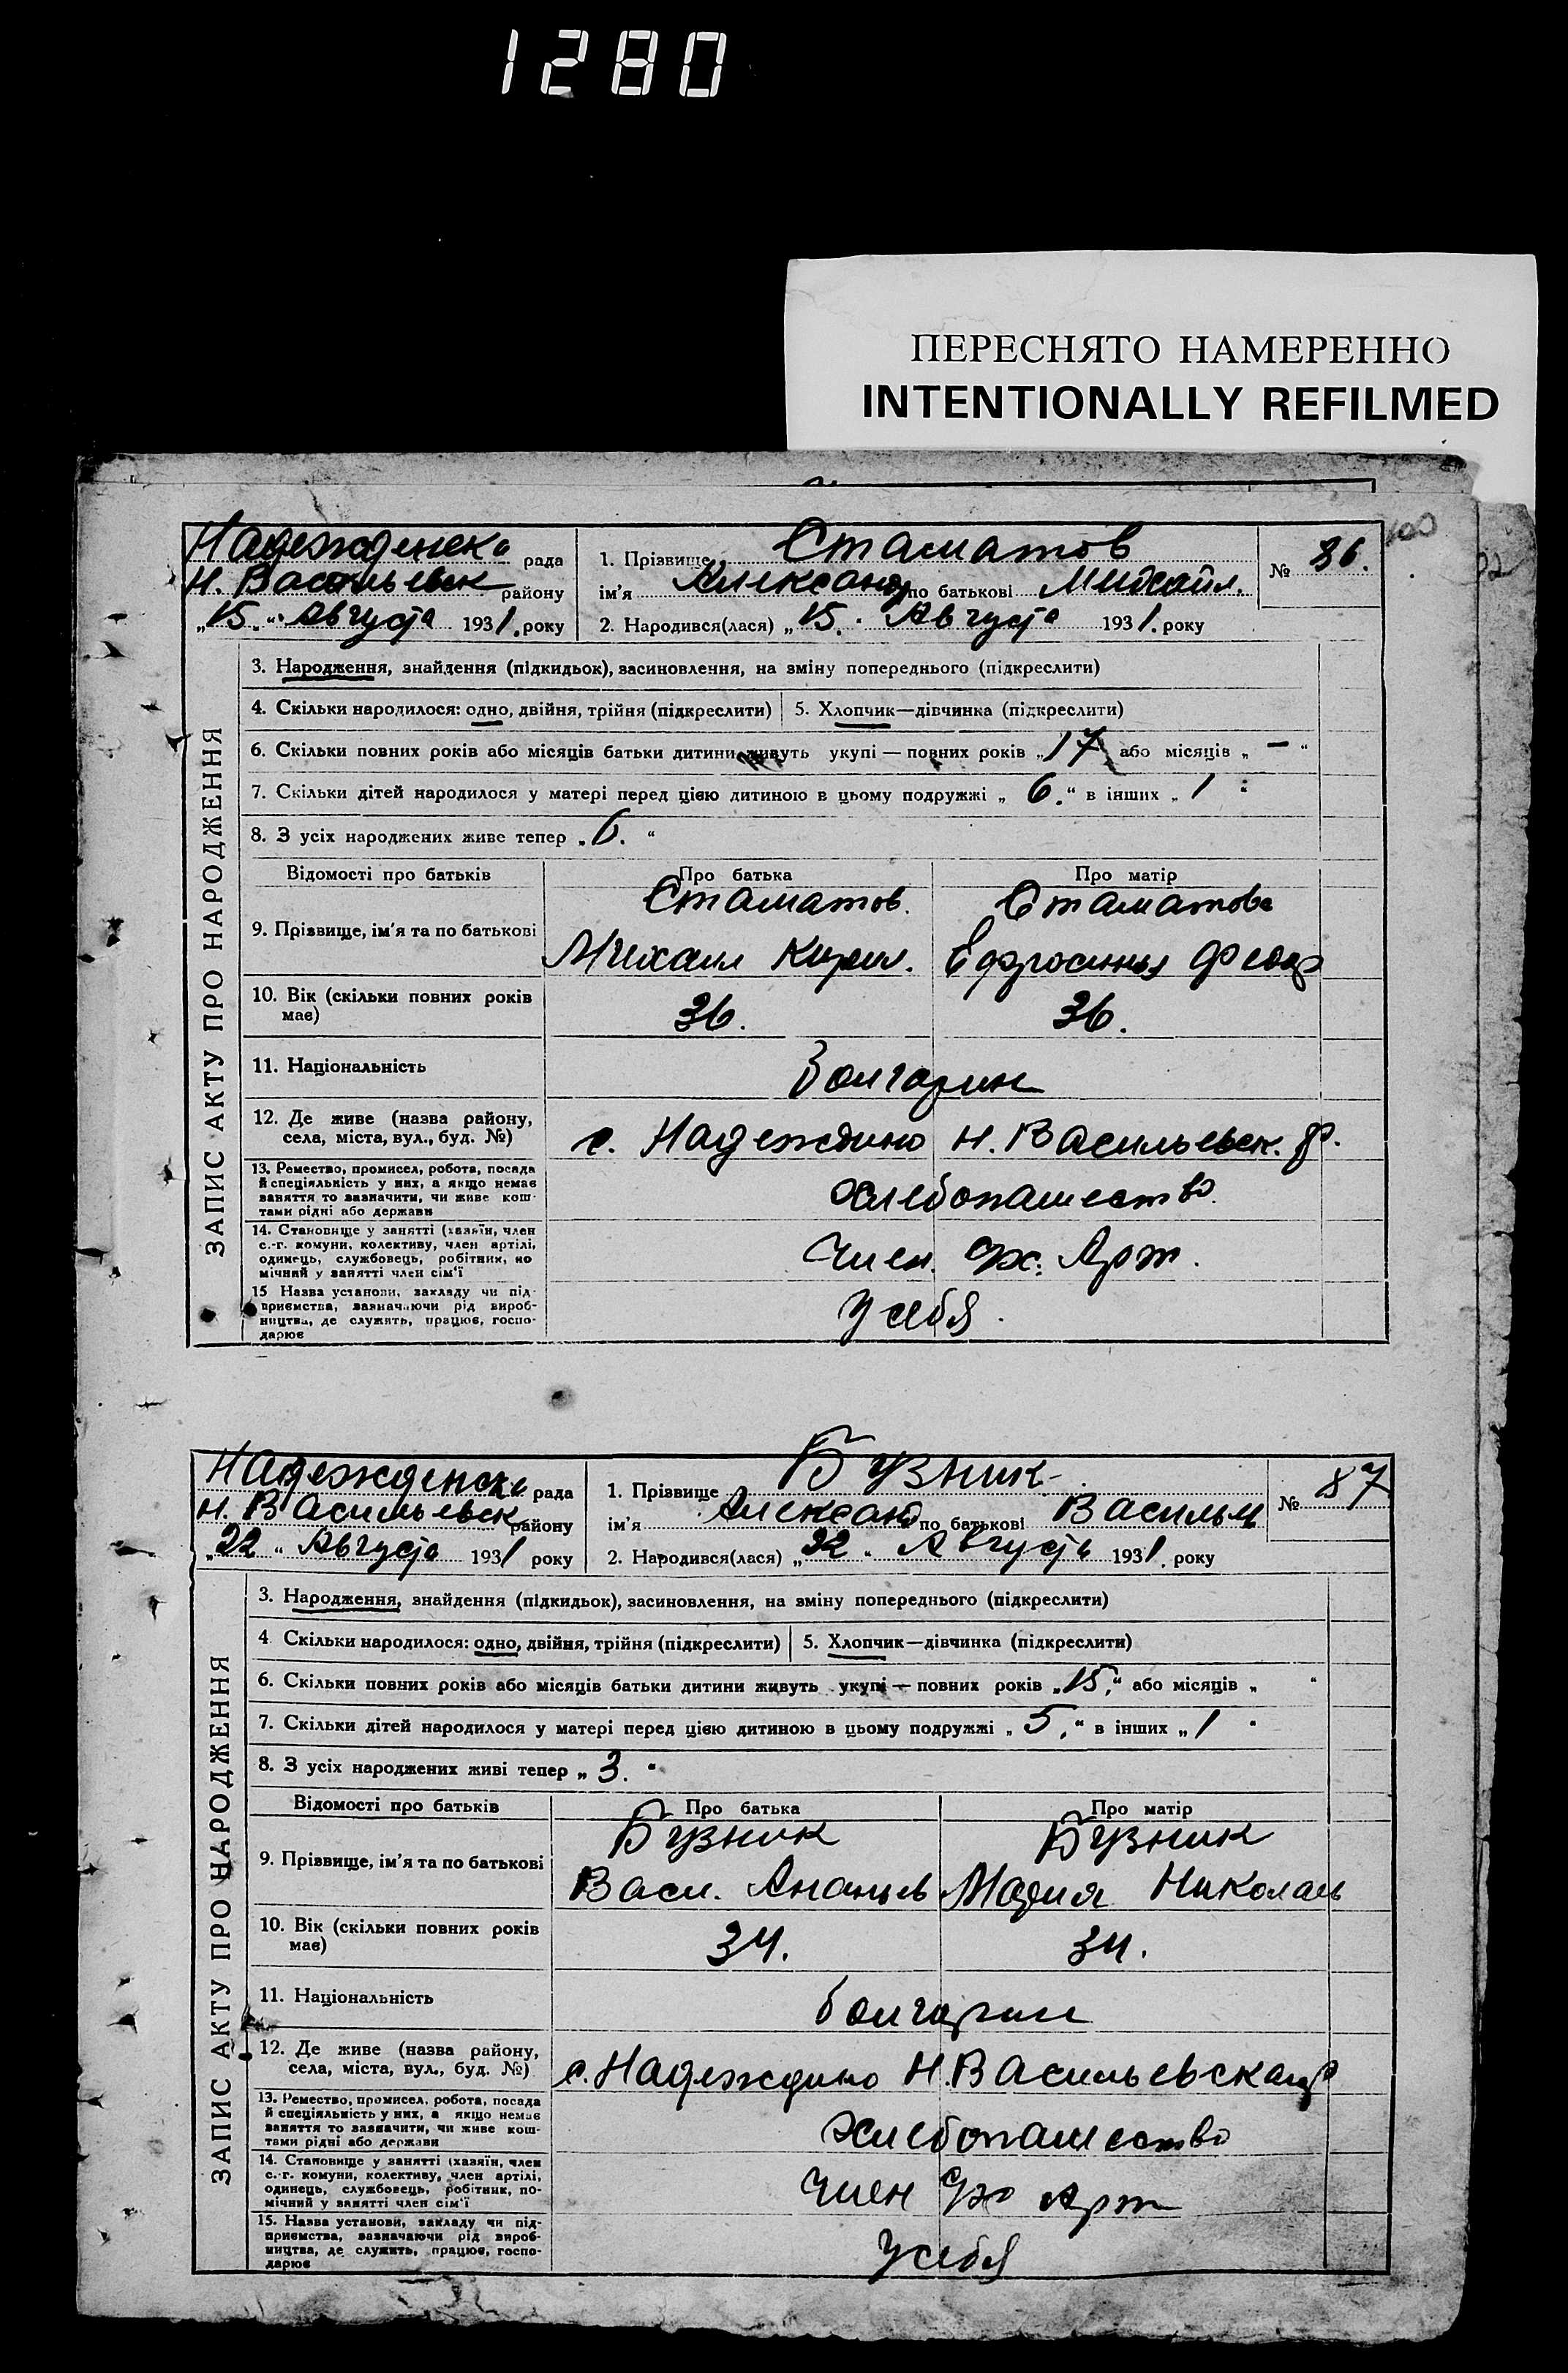 1280
ПЕРЕСНЯТО НАМЕРЕННО
INTENTIONALLY REFILMED
Надежденска рада
Н. Васильевск району
„15.“ Августа 1931. року
1. Прізвище Стаматов
ім'я Александ по батькові Михайл.
2. Народився(лася) „15.“ Августа 1931. року
№ 86.
100
ЗАПИС АКТУ ПРО НАРОДЖЕННЯ
3. Народження, знайдення (підкидьок), засиновлення, на зміну попереднього (підкреслити)
4. Скільки народилося: одно, двійня, трійня (підкреслити) 5. Хлопчик—дівчинка (підкреслити)
6. Скільки повних років або місяців батьки дитини живуть укупі — повних років „17“ або місяців „ — “
7. Скільки дітей народилося у матері перед цією дитиною в цьому подружжі „ 6.“ в інших „ 1 “
8. З усіх народжених живе тепер „6.“
Відомості про батьків Про батька Про матір
9. Прізвище, ім'я та по батькові
Стаматов. Стаматова
Михаил Кирил. Ефросинья Феод
10. Вік (скільки повних років має)
36. 36.
11. Національність
Болгарин
12. Де живе (назва району, села, міста, вул., буд. №)
с. Надеждино Н. Васильевск. р.
13. Ремество, промисел, робота, посада
й спеціяльність у них, а якщо немає
заняття то зазначити, чи живе кош-
тами рідні або держави
хлебопашество.
14. Становище у занятті (хазяїн, член
с.-г. комуни, колективу, член артілі,
одинець, службовець, робітник, по
мічний у занятті член сім'ї
Член. Арт.
15 Назва установи, закладу чи під-
приємства, зазначаючи рід вироб-
ництва, де служить, працює, госпо-
дарює
У себя.
Надежденска рада
Н. Васильевск району
„22“ Августа 1931 року
1. Прізвище Бузник
ім'я Александ по батькові Васильи
2. Народився(лася) „22“ Августа 1931. року
№ 87
ЗАПИС АКТУ ПРО НАРОДЖЕННЯ
3. Народження, знайдення (підкидьок), засиновлення, на зміну попереднього (підкреслити)
4 Скільки народилося: одно, двійня, трійня (підкреслити) 5. Хлопчик—дівчинка (підкреслити)
6. Скільки повних років або місяців батьки дитини живуть укупі — повних років „15,“ або місяців „ “
7. Скільки дітей народилося у матері перед цією дитиною в цьому подружжі „ 5,“ в інших „ 1 “
8. З усіх народжених живі тепер „ 3. “
Відомості про батьків Про батька Про матір
9. Прізвище, ім'я та по батькові
Бузник Бузник
Васи. Ананьев Мария Николаев
10. Вік (скільки повних років має)
34. 34.
11. Національність
болгарин
12. Де живе (назва району, села, міста, вул., буд. №)
с. Надеждино Н. Васильевска р
13. Ремество, промисел, робота, посада
й спеціяльність у них, а якщо немає
заняття то зазначити, чи живе кош-
тами рідні або держави
хлебопашество
14. Становище у занятті (хазяїн, член
с.-г. комуни, колективу, член артілі,
одинець, службовець, робітник, по-
мічний у занятті член сім'ї
Член Арт
15. Назва установи, закладу чи під-
приємства, зазначаючи рід вироб-
ництва, де служить, працює, госпо-
дарює
У себя